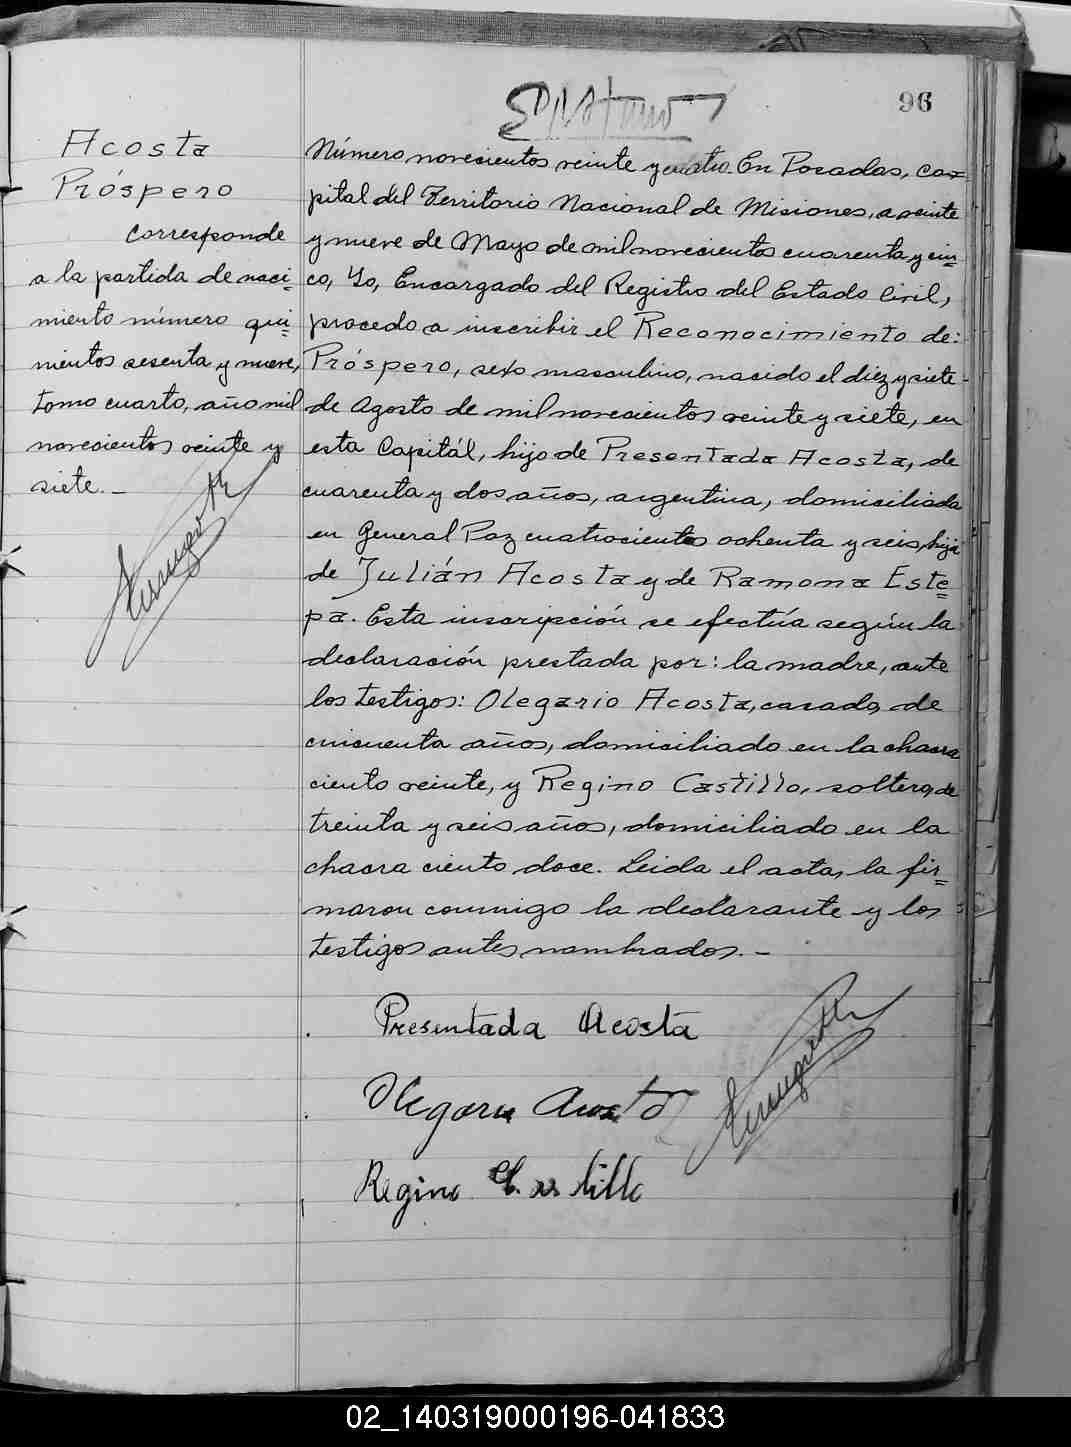 96
Acosta
Próspero
corresponde
a la partida de naci=
miento número qui=
nientos sesenta y nueve,
tomo cuarto, año mil
novecientos veinte y
siete. _
Número novecientos veinte y cuatro. En Posadas, ca=
pital del Territorio Nacional de Misiones, a veinte
y nueve de Mayo de mil novecientos cuarenta y cin=
co, Yo, Encargado del Registro del Estado Civil,
procedo a inscribir el Reconocimiento de:
Próspero, sexo masculino, nacido el diez y siete
de Agosto de mil novecientos veinte y siete, en
esta Capitál, hijo de Presentada Acosta, de
cuarenta y dos años, argentina, domiciliada
en General Paz cuatrocientos ochenta y seis, hija
de Julián Acosta y de Ramona Este=
pa. Esta inscripción se efectúa según la
declaración prestada por: la madre, ante
los testigos: Olegario Acosta, casado, de
cincuenta años, domiciliado en la chacra
ciento veinte, y Regino Castillo, soltero, de
treinta y seis años, domiciliado en la
chacra ciento doce. Leida el acta, la fir=
maron conmigo la declarante y los
testigos antes nombrados. _
Presentada Acosta
Olegario Acosta
Regino Castillo
02_140319000196-041833